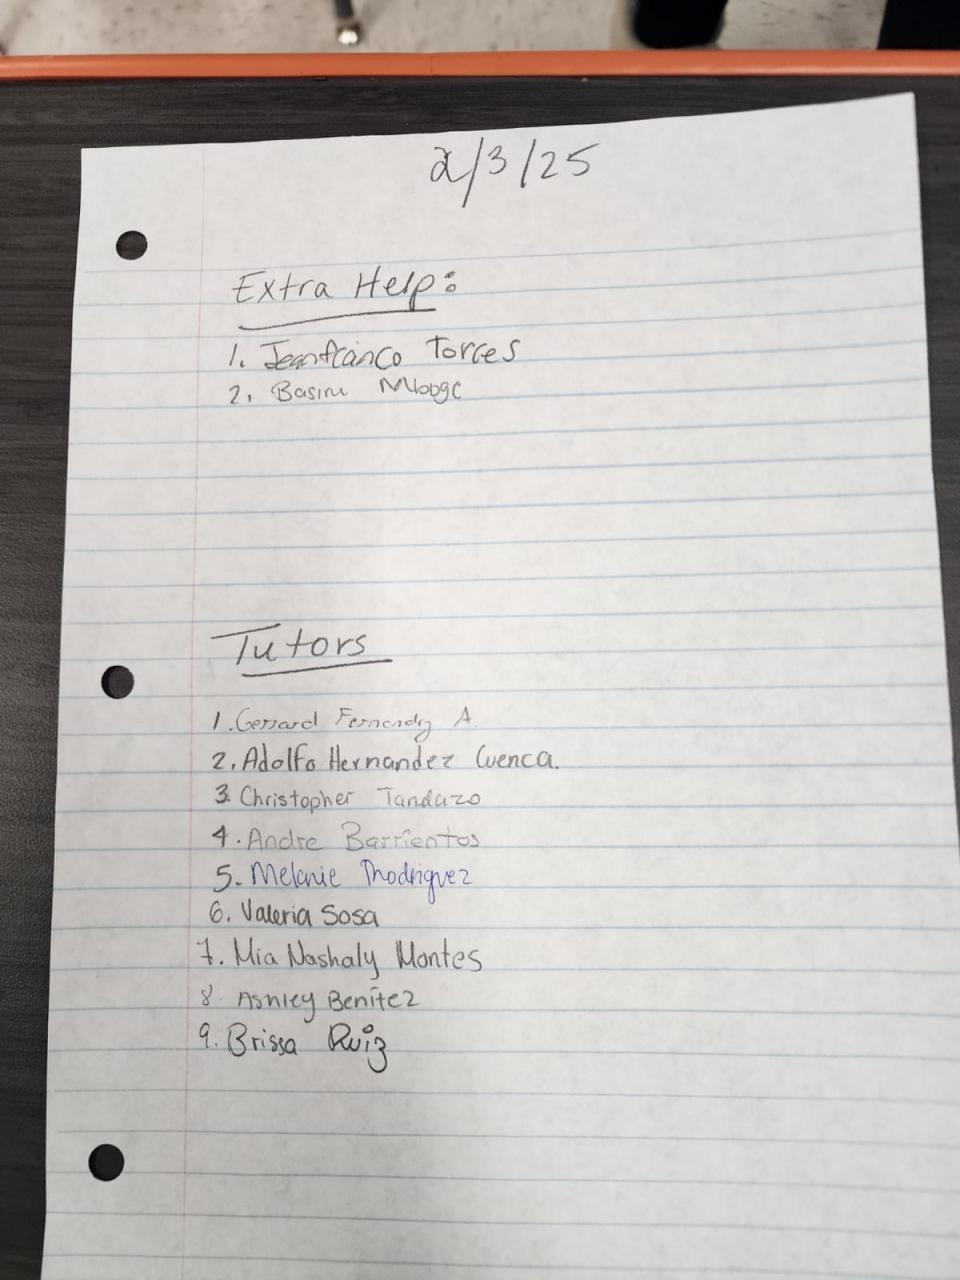 2/3/25
Extra Help:
1. Jeanfranco Torres
2. Basiru
Tutors
1. Gerrard A.
2. Adolfo Hernandez Cuenca.
3. Christopher Tandazo
4. Andre Barrientos
5. Melanie Rhodriguez
6. Valeria Sosa
7. Mia Nashaly Montes
8. Ashley Benitez
9. Brissa Ruiz